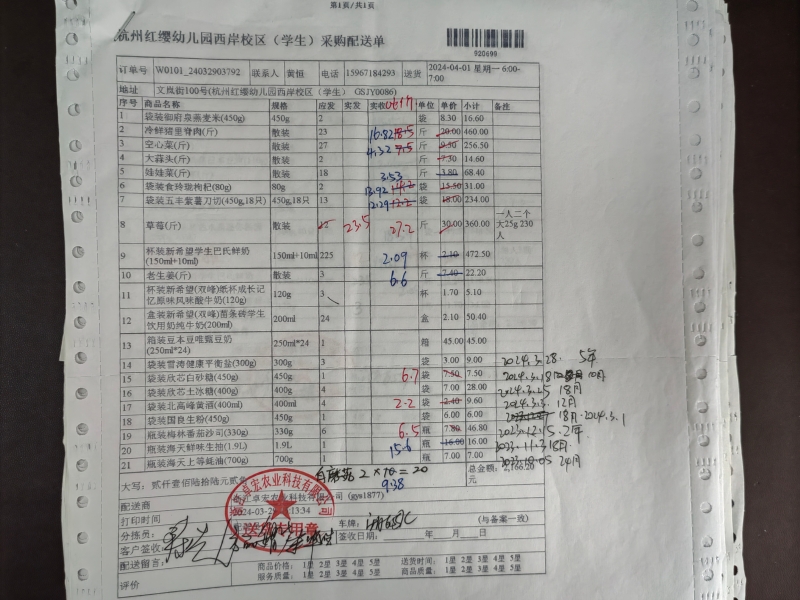 第1页/共1页
杭州红缨幼儿园西岸校区（学生）采购配送单
920699
订单号 W0101_24032903792 联系人 黄恒 电话 15967184293 送货 2024-04-01 星期一 6:00-7:00
地址 文岚街100号(杭州红缨幼儿园西岸校区（学生） GSJY0086)
序号 商品名称 规格 应发 实发 实收 单位 单价 小计 备注
1 袋装御府泉燕麦米(450g) 450g 2 袋 8.30 16.60
2 冷鲜猪里脊肉(斤) 散装 23 16.82 18.5 斤 20.00 460.00
3 空心菜(斤) 散装 27 4.32 7.5 斤 9.50 256.50
4 大蒜头(斤) 散装 2 斤 7.30 14.60
5 娃娃菜(斤) 散装 18 3.53 斤 3.80 68.40
6 袋装食玲珑枸杞(80g) 80g 2 13.92 袋 15.50 31.00
7 袋装五丰紫薯刀切(450g,18只) 450g,18只 13 12.29 袋 18.00 234.00
8 草莓(斤) 散装 23.5 27.2 斤 30.00 360.00 一人二个大25g 230人
9 杯装新希望学生巴氏鲜奶(150ml+10ml) 150ml+10ml 225 2.09 杯 2.10 472.50
10 老生姜(斤) 散装 3 6.6 斤 7.40 22.20
11 杯装新希望(双峰)纸杯成长记忆原味风味酸牛奶(120g) 120g 3 杯 1.70 5.10
12 盒装新希望(双峰)苗条砖学生饮用奶纯牛奶(200ml) 200ml 24 盒 2.10 50.40
13 箱装豆本豆唯甄豆奶(250ml*24) 250ml*24 1 箱 45.00 45.00
14 袋装雪涛健康平衡盐(300g) 300g 3 袋 3.00 9.00 2024.3.28. 5年
15 袋装欣芯白砂糖(450g) 450g 1 6.7 袋 7.50 7.50
16 袋装欣芯土冰糖(400g) 400g 4 袋 7.00 28.00
17 袋装北高峰黄酒(400ml) 400ml 4 2.2 袋 2.40 9.60
18 袋装国良生粉(450g) 450g 1 袋 6.00 6.00 18月.2024.3.1
19 瓶装梅林番茄沙司(330g) 330g 6 6.5 瓶 7.80 46.80 2023.12.15.2年
20 瓶装海天鲜味生抽(1.9L) 1.9L 1 15.6 瓶 16.00 16.00 2023.11.3 18月
21 瓶装海天上等蚝油(700g) 700g 1 瓶 7.00 7.00 24月
大写：贰仟壹佰陆拾陆元贰 2×10=20 总金额：2,166.20元
9.38
配送商 卓宏农业科技有限公司 (gys1877)
打印时间 13:34
分拣员： 车牌： (与备案一致)
客户签收： 签收日期： 年 月 日
配送留言：
评价 商品价格： 1星 2星 3星 4星 5星 送货时间： 1星 2星 3星 4星 5星
服务质量： 1星 2星 3星 4星 5星 商品质量： 1星 2星 3星 4星 5星